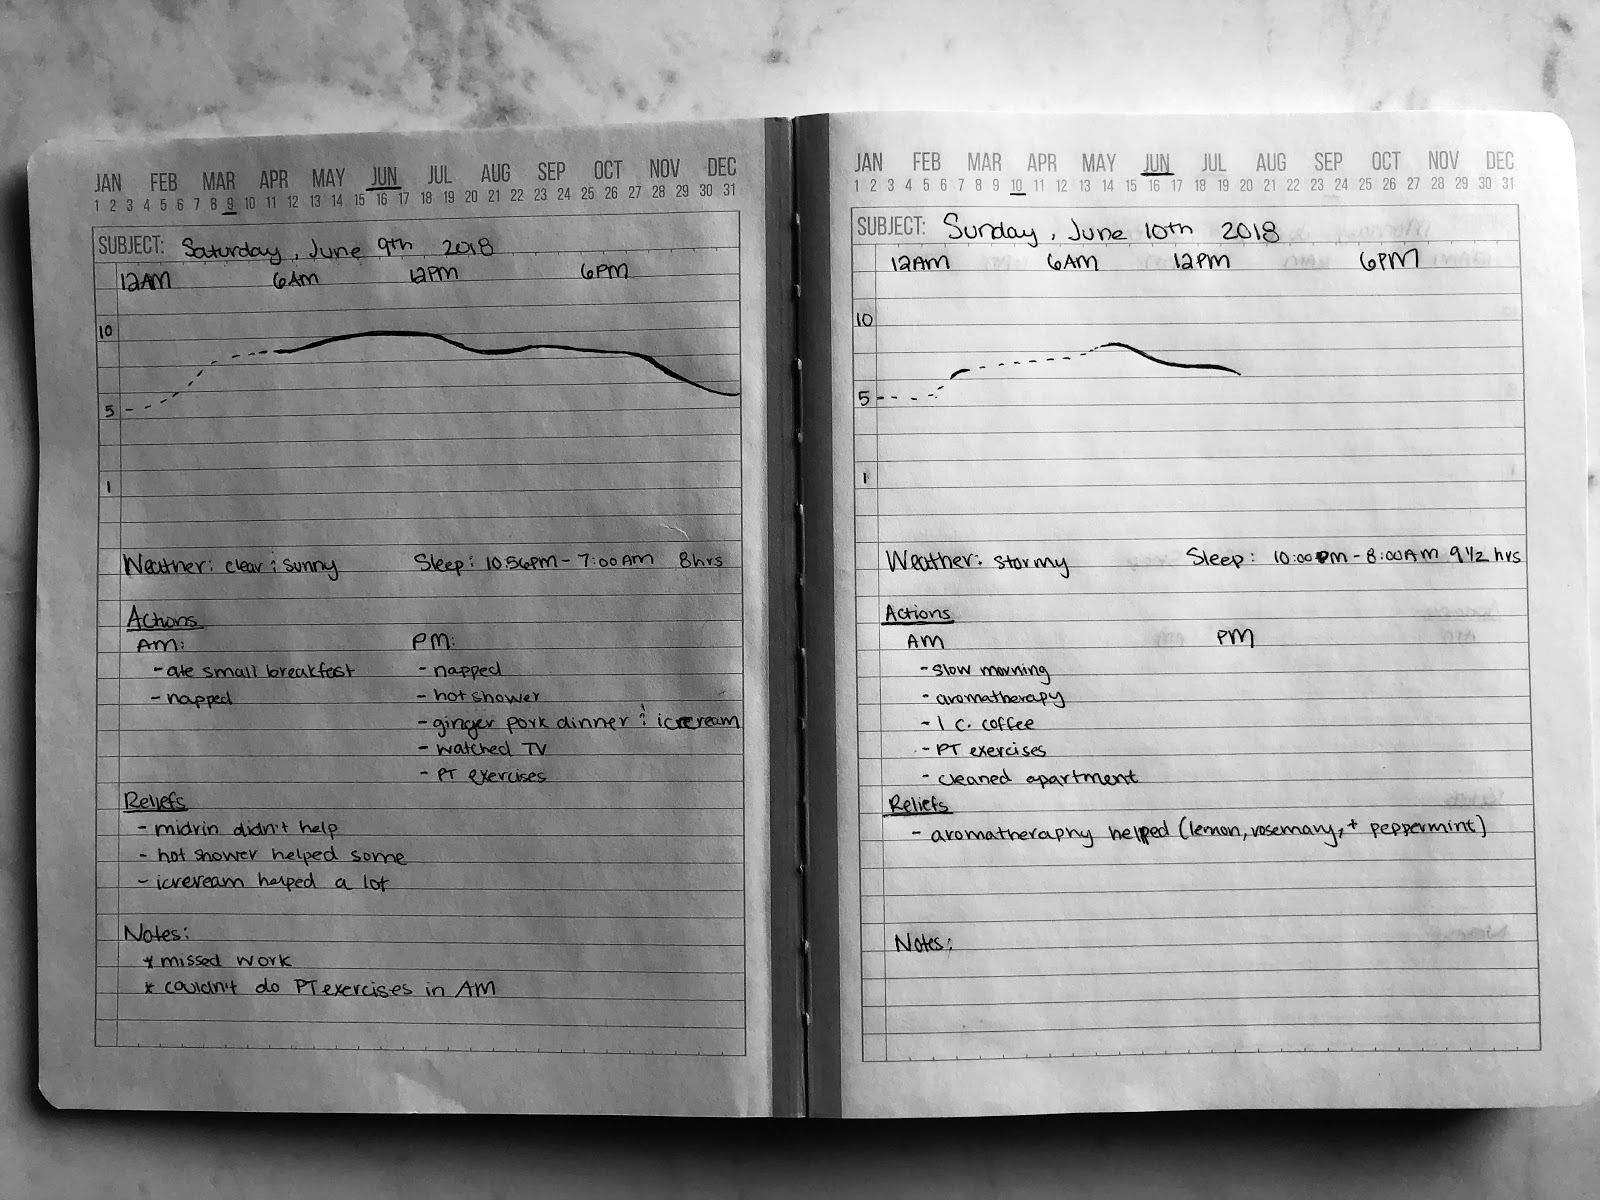 JAN FEB MAR APR MAY JUN JUL AUG SEP OCT NOV DEC
1 2 3 4 5 6 7 8 9 10 11 12 13 14 15 16 17 18 19 20 21 22 23 24 25 26 27 28 29 30 31
SUBJECT: Saturday, June 9th 2018
12AM 6AM 12PM 6PM
10
5
1
Weather: clear & sunny Sleep: 10:56PM - 7:00AM 8hrs
Actions
AM: PM:
- ate small breakfast - napped
- napped - hot shower
- ginger pork dinner & icream
- watched TV
- PT exercises
Reliefs
- midrin didn't help
- hot shower helped some
- icream helped a lot
Notes:
* missed work
* couldn't do PT exercises in AM
JAN FEB MAR APR MAY JUN JUL AUG SEP OCT NOV DEC
1 2 3 4 5 6 7 8 9 10 11 12 13 14 15 16 17 18 19 20 21 22 23 24 25 26 27 28 29 30 31
SUBJECT: Sunday, June 10th 2018
12AM 6AM 12PM 6PM
10
5
1
Weather: stormy Sleep: 10:00PM - 8:00AM 9 1/2 hrs
Actions
AM PM
- slow morning
- aromatherapy
- 1 c. coffee
- PT exercises
- cleaned apartment
Reliefs
- aromatheraphy helped (lemon, rosemary, + peppermint)
Notes: